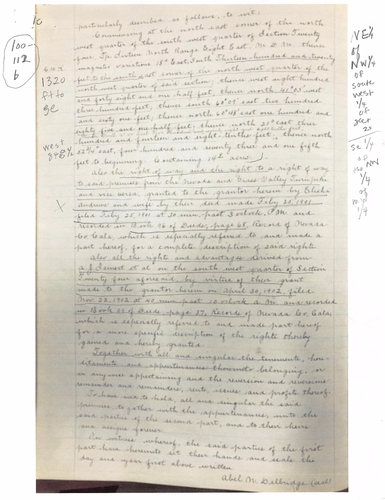 particularly described as follows, to wit:
Commencing at the north east corner of the north
west quarter of the south west quarter of Section Twenty
four, Tp. Sixteen North Range Eight East M. D. M. thence
magnetic variation 18° East, South Thirteen hundred and Twenty
feet to the south east corner of the north west quarter of the
south west quarter of said section, thence west eight hundred
and forty eight and one half feet, thence north
three hundred feet, thence south two hundred
and sixty one feet, thence north one hundred and
eighty five and one half feet, thence north 31° east three
hundred and fourteen and eight-tenths feet, thence north
east, four hundred and seventy three and one fifth
feet to beginning. Containing acres
Also the right of way and the right to a right of way
to said premises from the Nevada and Grass Valley turnpike
and vice versa, granted to the grantor herein by
Andrew and wife by their deed made July 25, 1901
filed July 25, 1901 at 30 min. past 3 o'clock P.M. and
recorded in Book 96 of Deeds, page 68, Record of Nevada
Co. Cala, which is especially referred to and made a
part hereof, for a complete description of said rights.
Also all the rights and advantages derived from
et al on the south west quarter of Section
Twenty four aforesaid, by virtue of their grant
made to the grantor herein on April 30, 1902, filed
Nov. 22, 1902 at min. past 10 o'clock A.M. and recorded
in Book of Deeds, page 37, Records of Nevada Co. Cala,
which is especially referred to and made part hereof
for a more specific description of the rights thereby
gained and hereby granted.
Together with all and singular the tenements, here-
ditaments and appurtenances thereunto belonging, or
in anywise appertaining and the reversion and reversions
remainder and remainders, rents, issues and profits thereof.
To have and to hold, all and singular the said
premises, together with the appurtenances, unto the
said parties of the second part, and to their heirs
and assigns forever.
In witness whereof, the said parties of the first
part have hereunto set their hands and seals the
day and year first above written.
Abel N. Delbridge (seal)
100-
112
b
1320
ft to
se
west
X
NE¼
of
NW¼
of
south
west
¼
of
sec
se ¼
of
NW
¼
of
¼